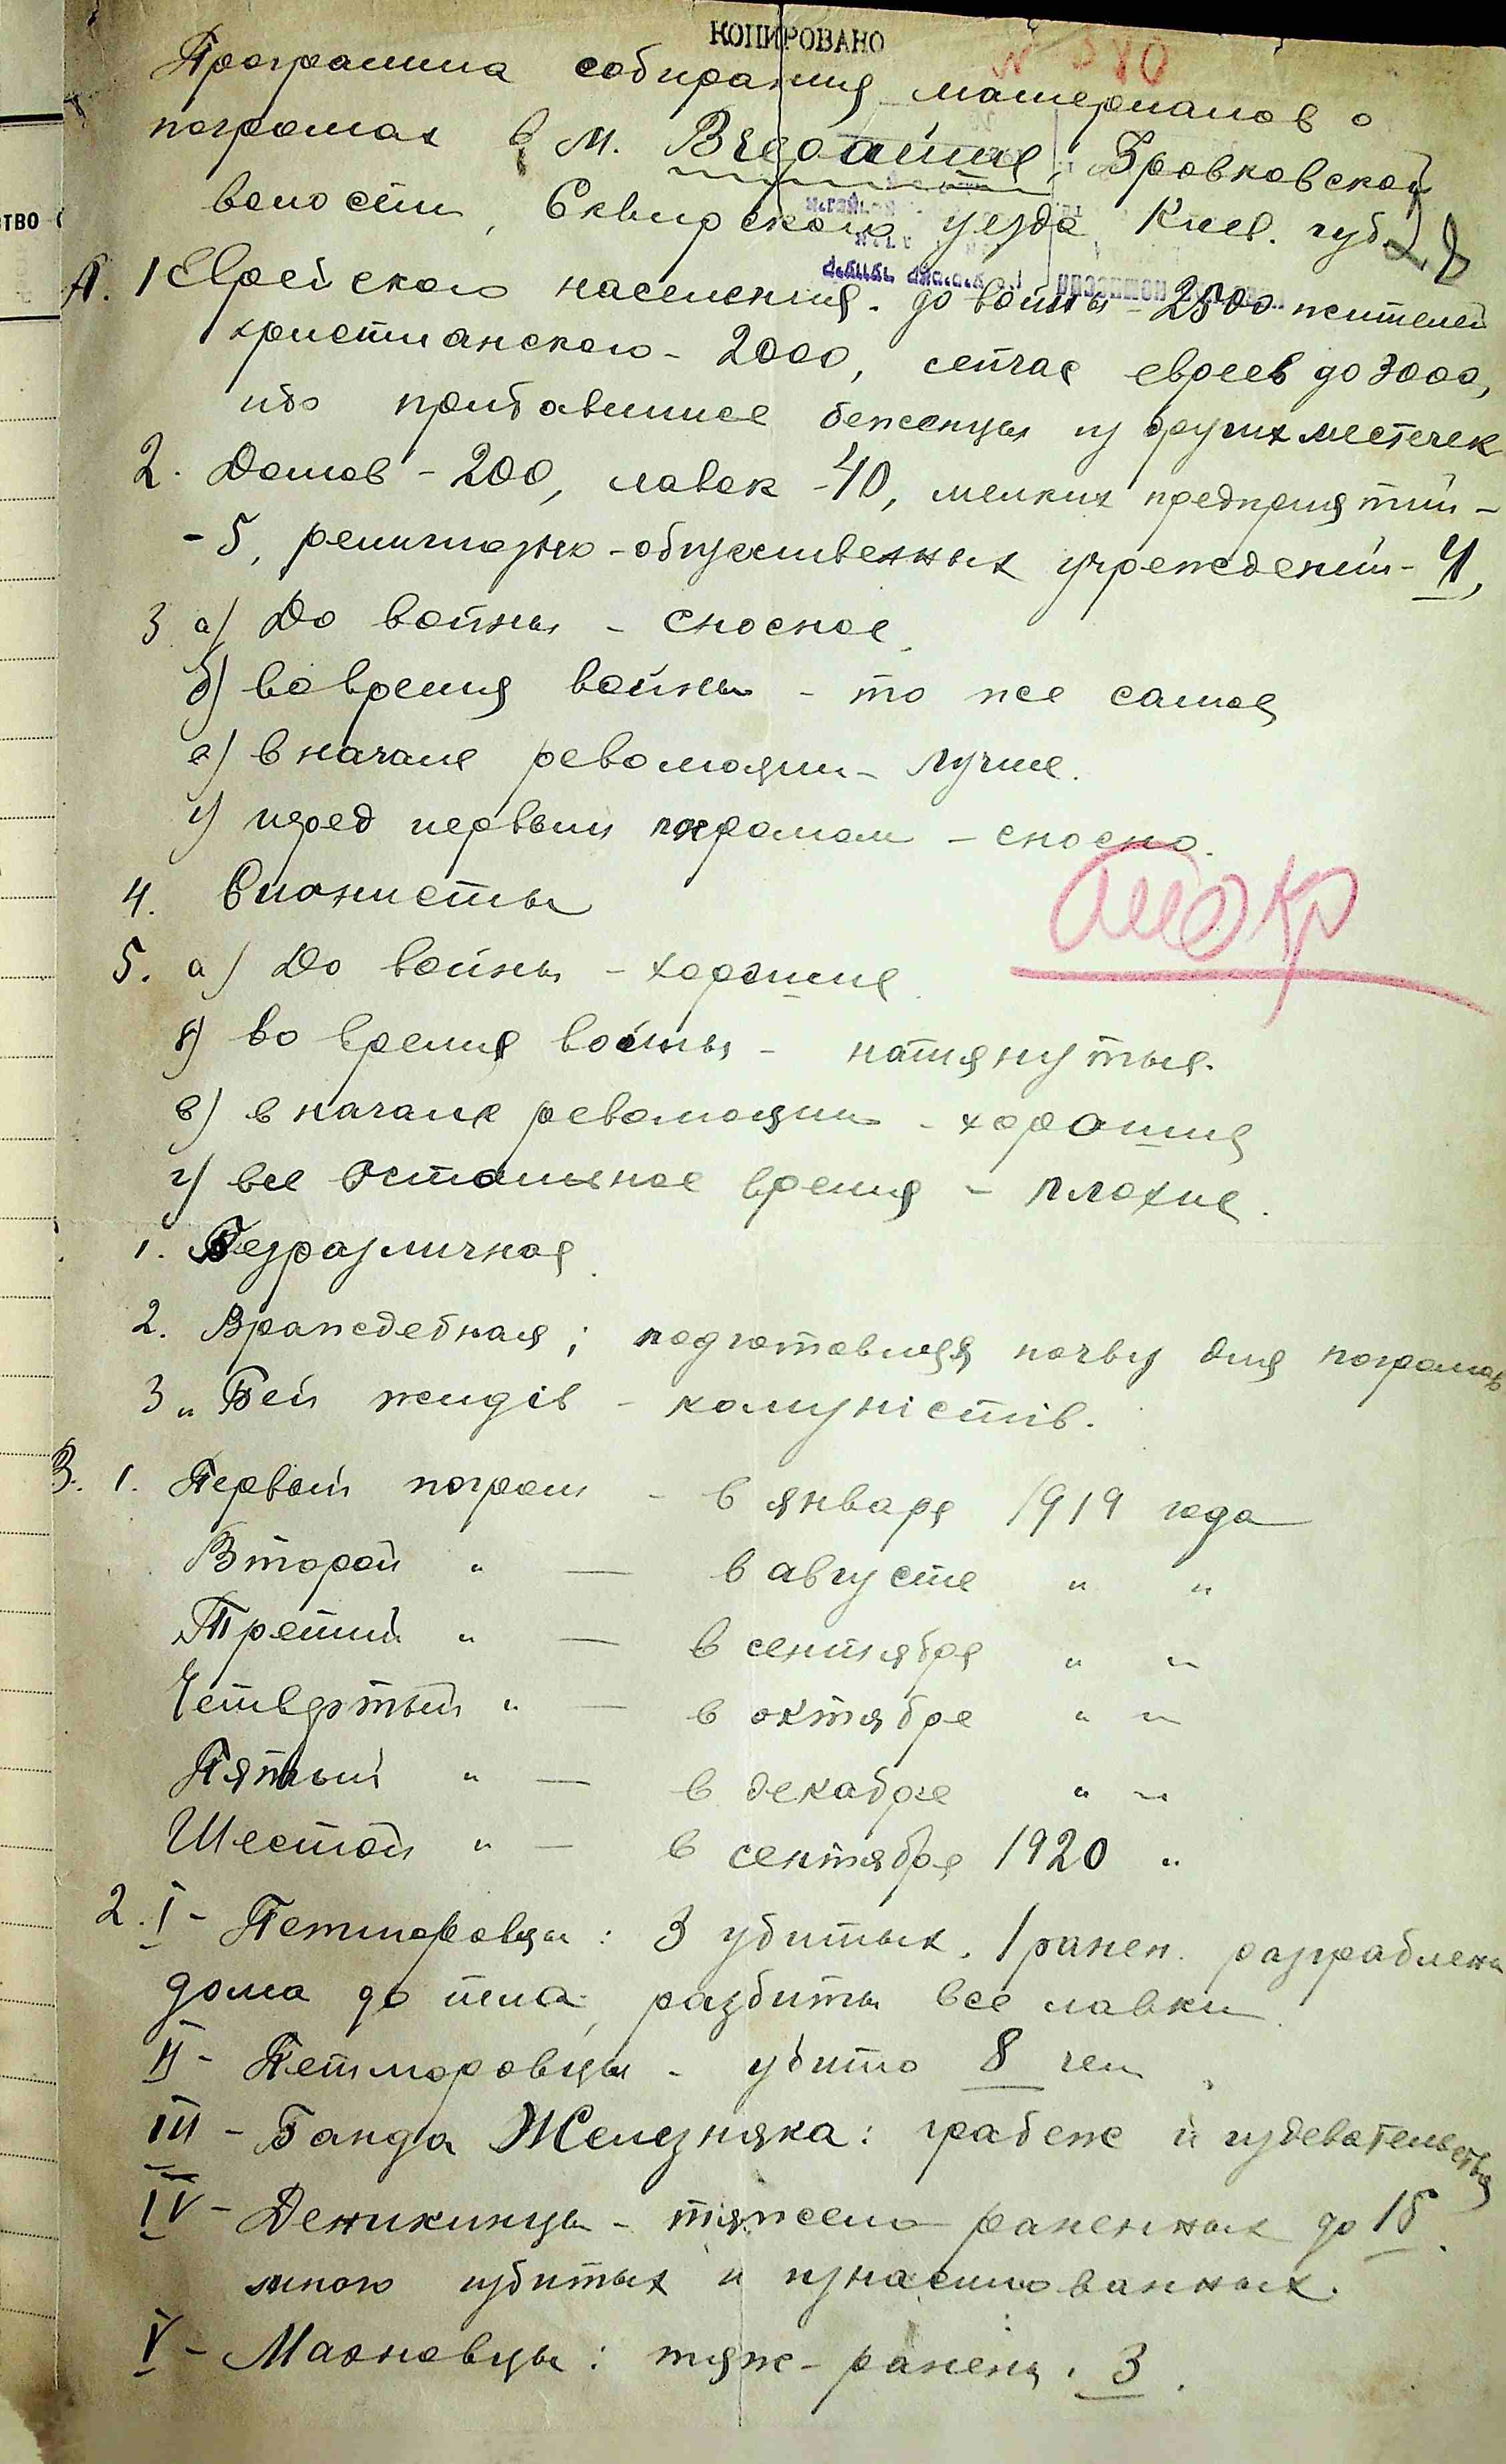 КОПИРОВАНО
N 380
Программа собирания материалов о
погромах в м. Вчерайше, Бровковской
волости, Сквирского уезда Киев. губ.
28
А. 1 Еврейского населения до войны - 2500 жителей
христианского - 2000, сейчас евреев до 3000,
ибо прибавились беженцы из других местечек
2. Домов - 200, лавок - 40, мелких предприятий -
- 5, религиозно-общественных учреждений - 4,
3 а) До войны - сносное
б) во время войны - то же самое
в) в начале революции - лучше.
г) перед первым погромом - сносно.
4. Сионисты
5. а) До войны - хорошие
б) во время войны - натянутые.
в) в начале революции - хорошия
г) все остальное время - плохие.
1. Безразличная
2. Враждебная; подготовляя почву для погромов
3 „Бей жидів - комуністів.
В. 1. Первый погром - в январе 1919 года
Второй " — в августе " "
Третий " — в сентябре " "
Четвертый " — в октябре " "
Пятый " — в декабре " "
Шестой " — в сентябре 1920 "
2. I - Петлюровцы: 3 убитых, 1 ранен. разграблены
дома до тла, разбиты все лавки.
II - Петлюровцы - убито 8 чел.
III - Банда Железняка: грабеж и издевательства
IV - Деникинцы - тяжело раненных до 15.
много избитых и изнасилованных.
V - Махновцы: тяж- ранены. 3.